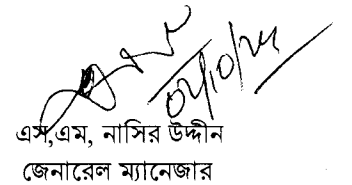 এস,এম, নাসির উদ্দীন
জেনারেল ম্যানেজার